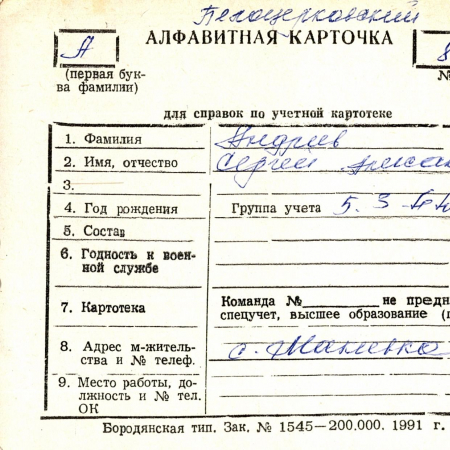 Белоцерковский
А
АЛФАВИТНАЯ КАРТОЧКА
8
(первая бук-
ва фамилии)
№
для справок по учетной картотеке
1. Фамилия Андриев
2. Имя, отчество Сергей
3.
4. Год рождения Группа учета 5.3
5. Состав
6. Годность к воен-
ной службе
7. Картотека Команда №________ не предн
спецучет, высшее образование (
8. Адрес м-житель-
ства и № телеф. с.
9. Место работы, до-
лжность и № тел.
ОК
Бородянская тип. Зак. № 1545—200.000. 1991 г.